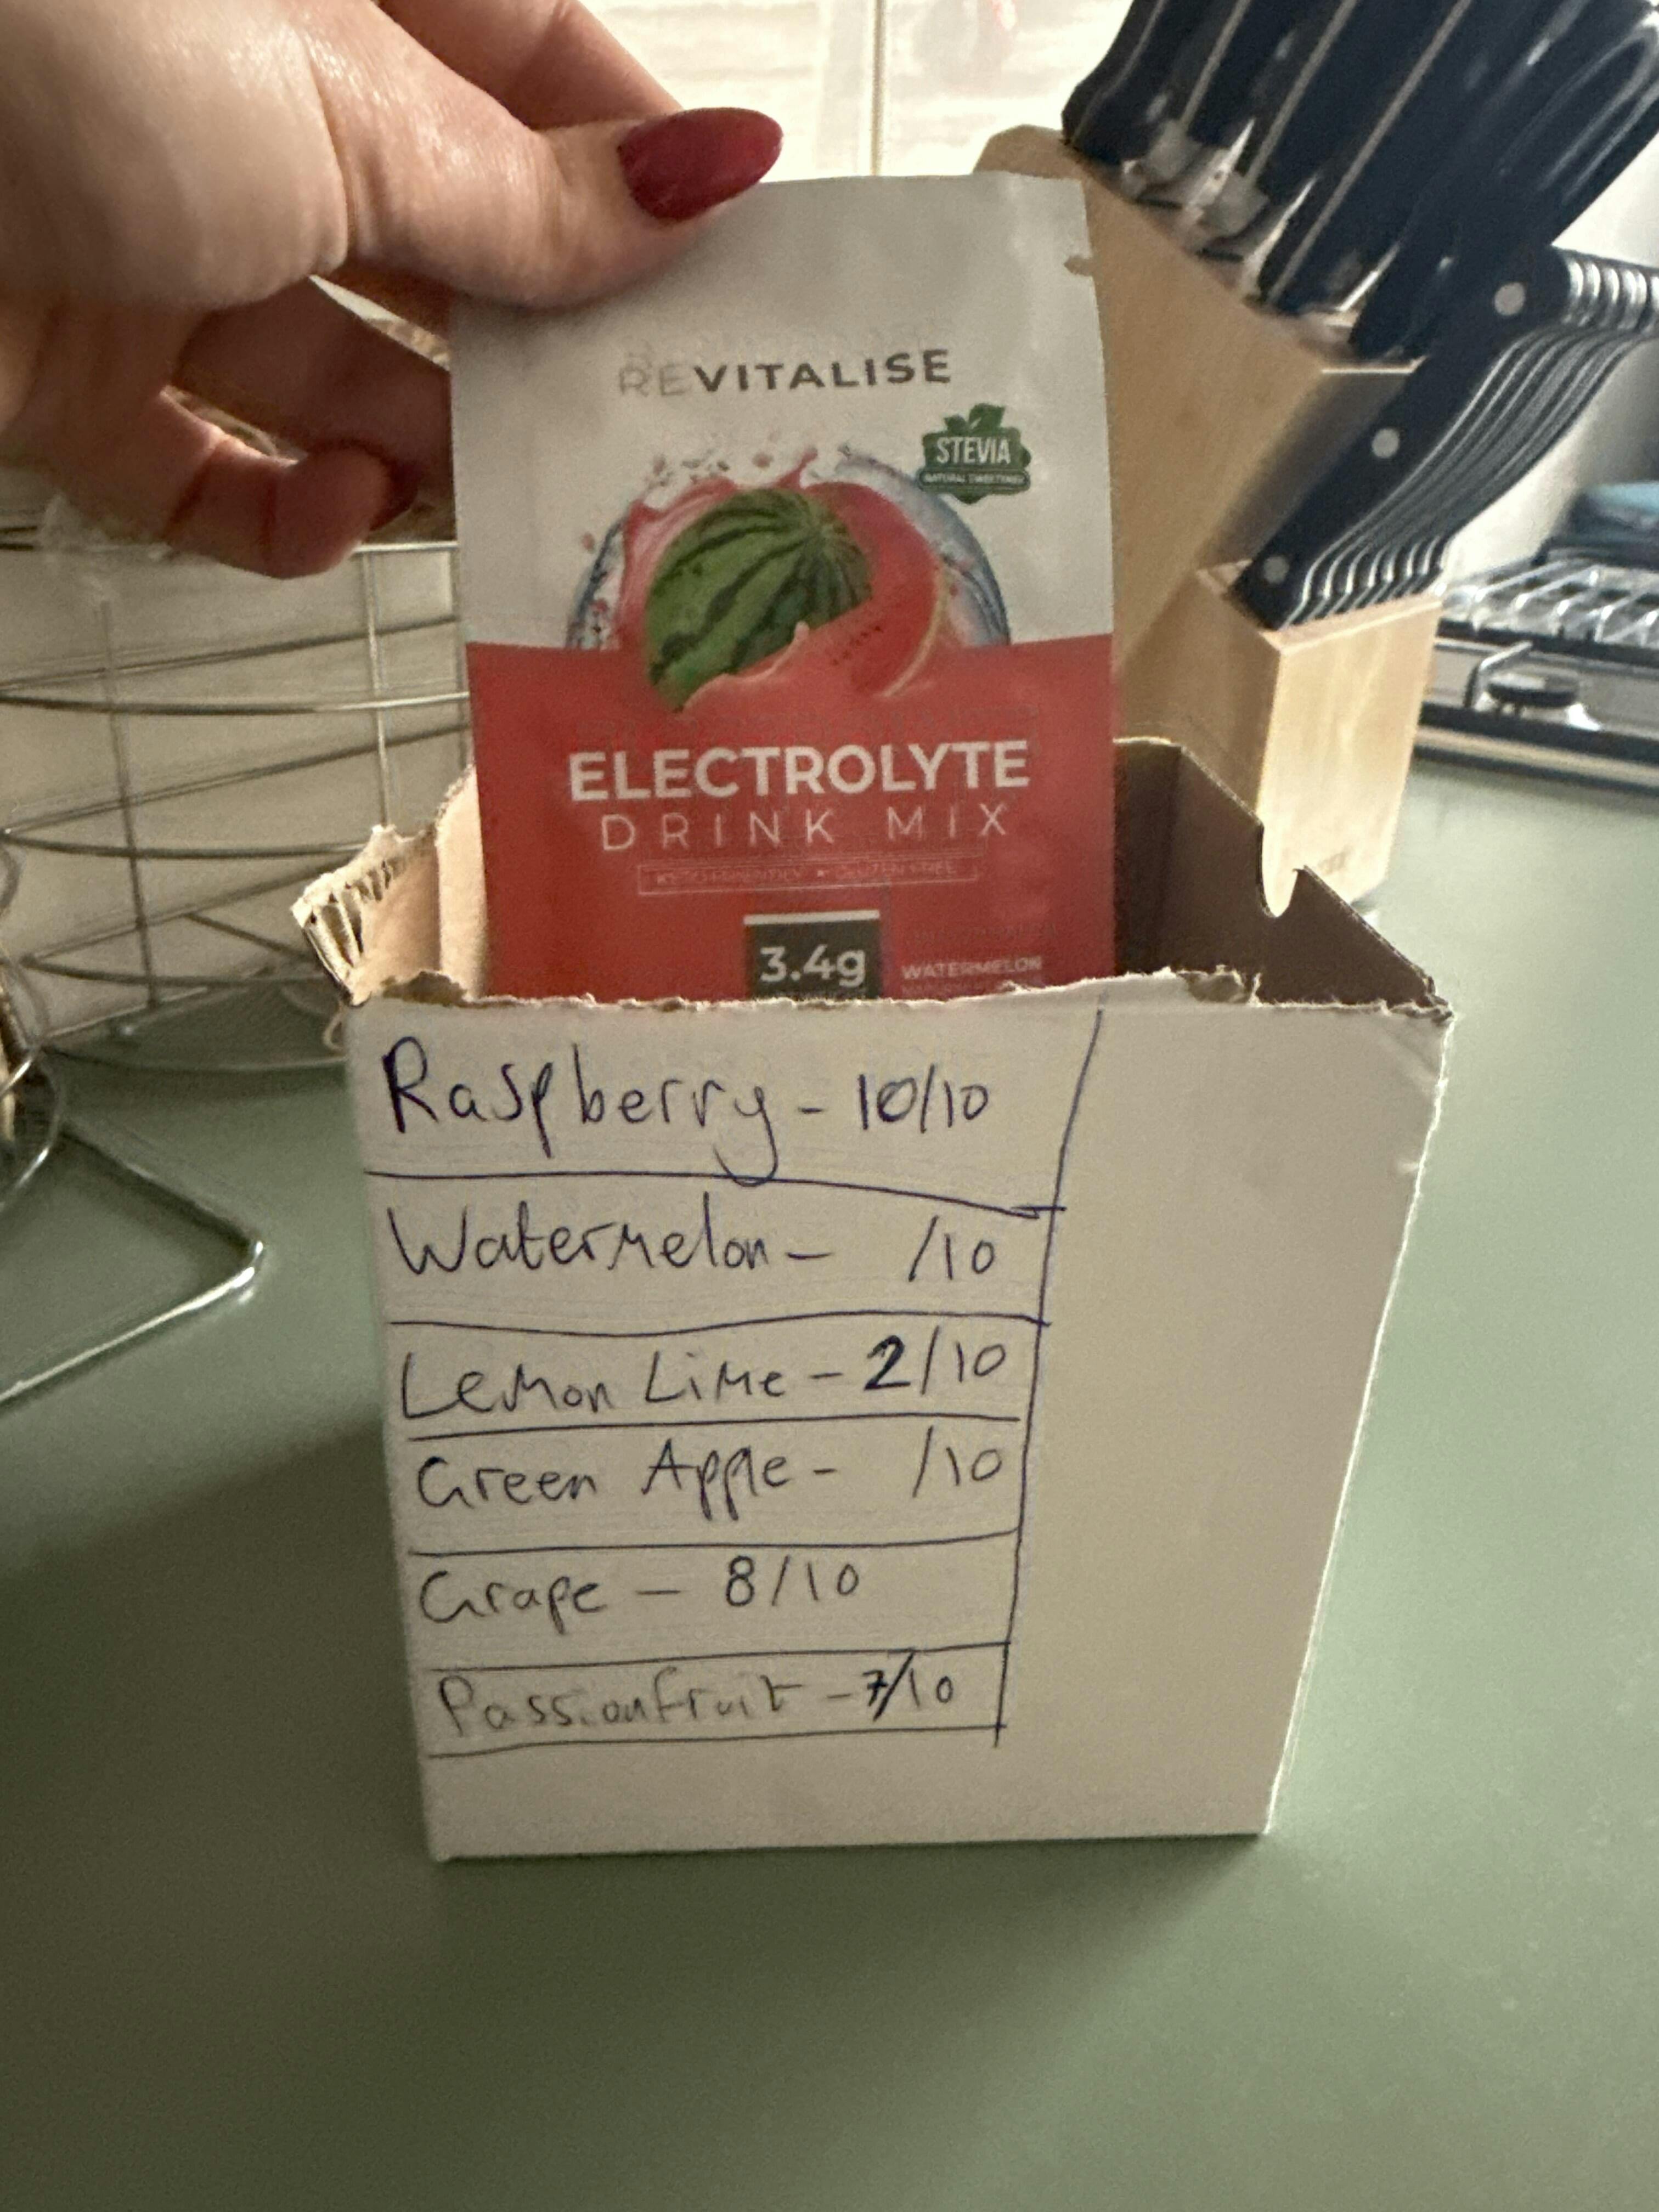 REVITALISE
STEVIA
NATURAL SWEETENER
ELECTROLYTE
DRINK MIX
KETO FRIENDLY • GLUTEN FREE
3.4g
WATERMELON
Raspberry - 10/10
Watermelon - /10
Lemon Lime - 2/10
Green Apple - /10
Grape - 8/10
Passionfruit - 7/10